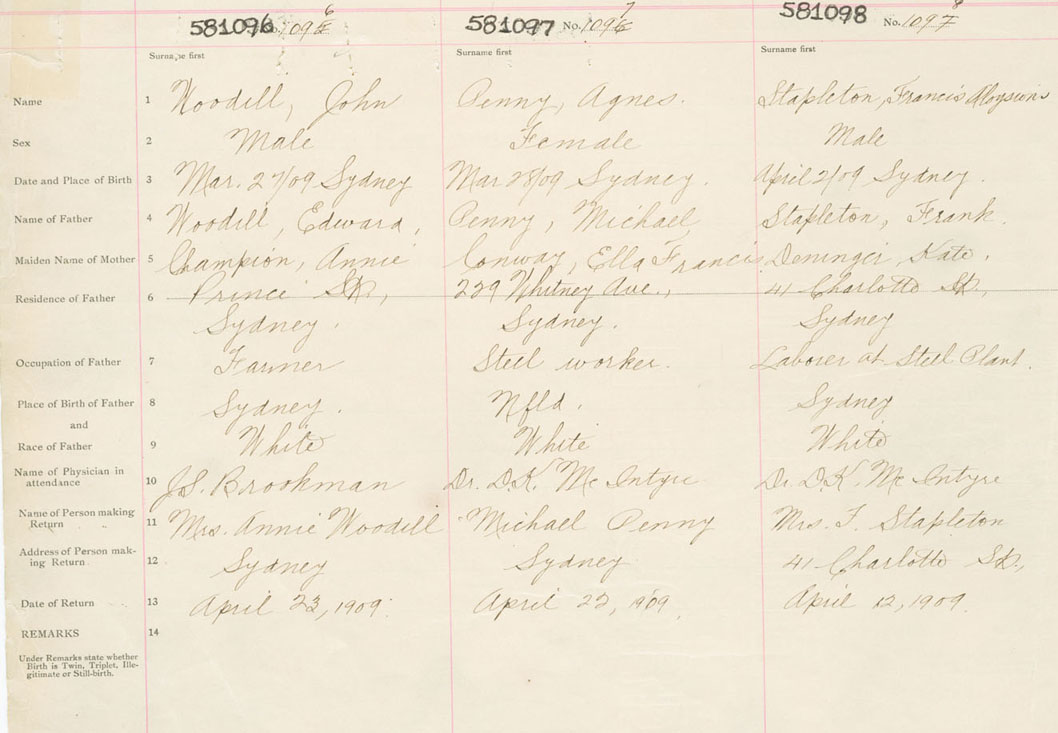 581096 No. 1096
581097 No. 1097
581098 No. 1098
Surname first Surname first Surname first
Name 1 Woodill, John Penny, Agnes. Stapleton, Francis Aloysious
Sex 2 Male Female Male
Date and Place of Birth 3 Mar. 27/09 Sydney Mar 28/09 Sydney. April 2/09 Sydney.
Name of Father 4 Woodill, Edward, Penny, Michael, Stapleton, Frank.
Maiden Name of Mother 5 Champion, Annie Conway, Ella Francis Kate.
Residence of Father 6 Prince St., 229 Whitney Ave., 41 Charlotte St.,
Sydney. Sydney. Sydney
Occupation of Father 7 Farmer Steel worker. Laborer at Steel Plant.
Place of Birth of Father 8 Sydney. Nfld. Sydney
and
Race of Father 9 White White White
Name of Physician in
attendance 10 J.S. Brookman Dr. D.K. McIntyre Dr. D.K. McIntyre
Name of Person making
Return 11 Mrs. Annie Woodill Michael Penny Mrs. F. Stapleton
Address of Person mak-
ing Return 12 Sydney Sydney 41 Charlotte St.,
Date of Return 13 April 23, 1909. April 22, 1909. April 12, 1909.
REMARKS 14
Under Remarks state whether
Birth is Twin, Triplet, Ille-
gitimate or Still-birth.